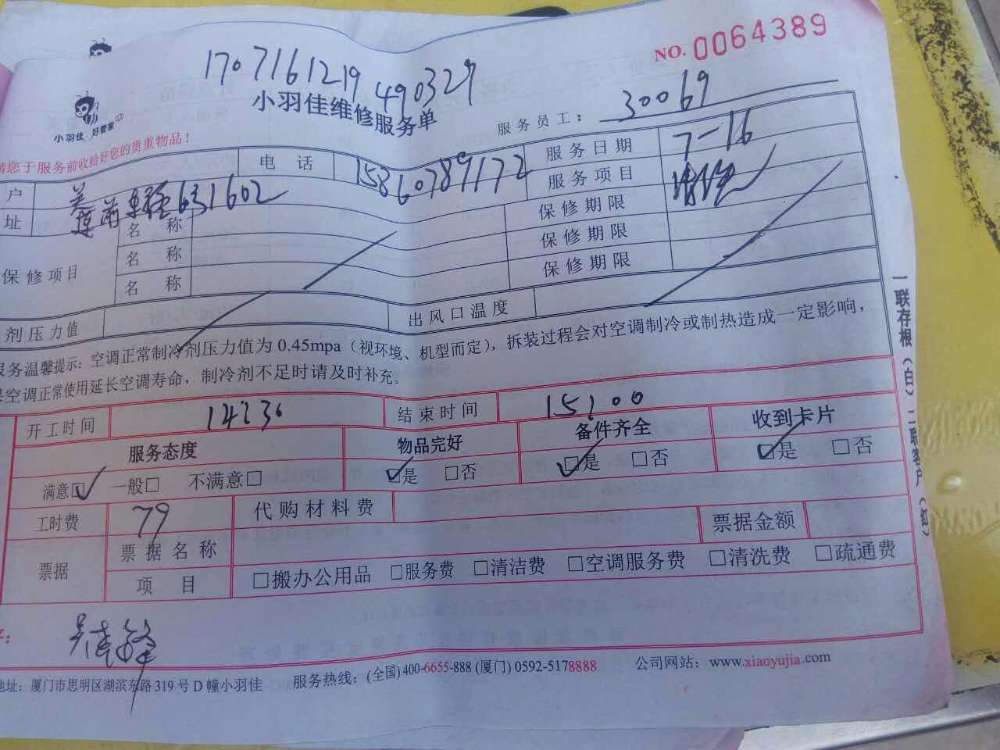 NO. 0064389
1707161219 490327
小羽佳维修服务单
小羽佳 好管家
服务员工： 30069
请您于服务前收检好您的贵重物品！
户 电 话 15860789172 服务日期 7-16
址 631602 服务项目
保修项目 名 称 保修期限
名 称 保修期限
名 称 保修期限
剂压力值 出风口温度
服务温馨提示: 空调正常制冷剂压力值为 0.45mpa（视环境、机型而定），拆装过程会对空调制冷或制热造成一定影响，
空调正常使用延长空调寿命，制冷剂不足时请及时补充。
开工时间 14:30 结束时间 15:00
服务态度 物品完好 备件齐全 收到卡片
满意☑ 一般□ 不满意□ ☑是 □否 ☑是 □否 ☑是 □否
工时费 79 代购材料费
票据 票据名称 票据金额
项 目 □搬办公用品 □服务费 □清洁费 □空调服务费 □清洗费 □疏通费
地址：厦门市思明区湖滨东路 319 号 D 幢小羽佳 服务热线：(全国) 400-6655-888 (厦门) 0592-5178888 公司网站：www.xiaoyujia.com
一联存根（白）二联客户（红）